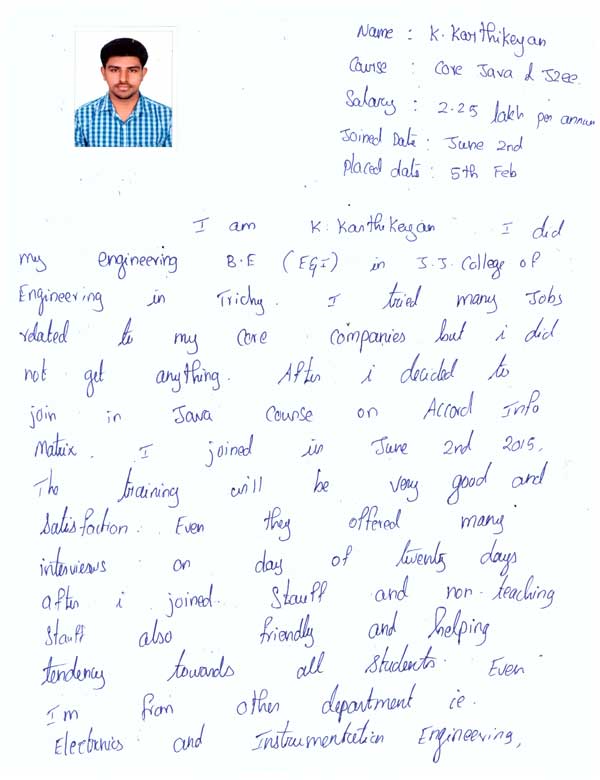 Name : K. Karthikeyan
Course : Core Java & J2ee.
Salary : 2.25 lakh per annum
Joined Date : June 2nd
Placed date : 5th Feb
I am K. Karthikeyan I did
my engineering B.E (E&I) in J.J. College of
Engineering in Trichy. I tried many Jobs
related to my core companies but i did
not get anything. After i decided to
join in Java Course on Accord Info
Matrix. I joined in June 2nd 2015.
The training will be very good and
Satisfaction. Even they offered many
interviews on day of twenty days
after i joined. Stauff and non-teaching
Stauff also friendly and helping
tendency towards all students. Even
I'm from other department ie.
Electronics and Instrumentation Engineering,